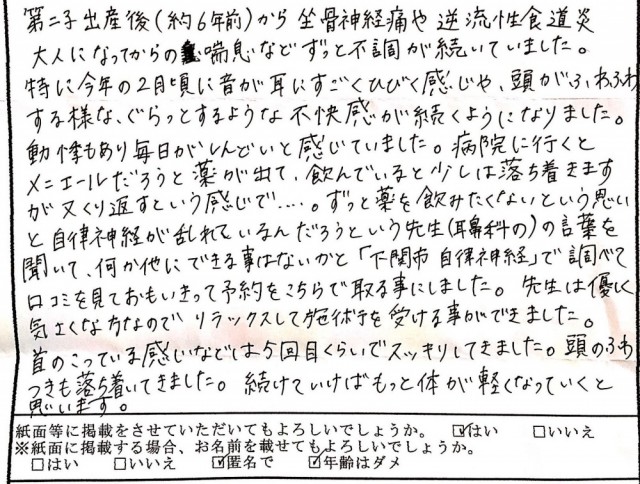 第二子出産後(約6年前)から坐骨神経痛や逆流性食道炎
大人になってからの喘息などずっと不調が続いていました。
特に今年の2月頃に音が耳にすごくひびく感じや、頭がふわふわ
する様な、ぐらっとするような不快感が続くようになりました。
動悸もあり毎日がしんどいと感じていました。病院に行くと
メニエールだろうと薬が出て、飲んでいると少しは落ち着きます
が又くり返すという感じで‥‥。ずっと薬を飲みたくないという思い
と自律神経が乱れているんだろうという先生(耳鼻科の)の言葉を
聞いて、何か他にできる事はないかと「下関市 自律神経」で調べて
口コミを見ておもいきって予約をこちらで取る事にしました。先生は優しく
気さくな方なのでリラックスして施術を受ける事ができました。
首のこっている感じなどは5回目くらいでスッキリしてきました。頭のふわ
つきも落ち着いてきました。続けていけばもっと体が軽くなっていくと
思います。
紙面等に掲載をさせていただいてもよろしいでしょうか。 ☑はい □いいえ
※紙面に掲載する場合、お名前を載せてもよろしいでしょうか。
□はい □いいえ ☑匿名で ☑年齢はダメ